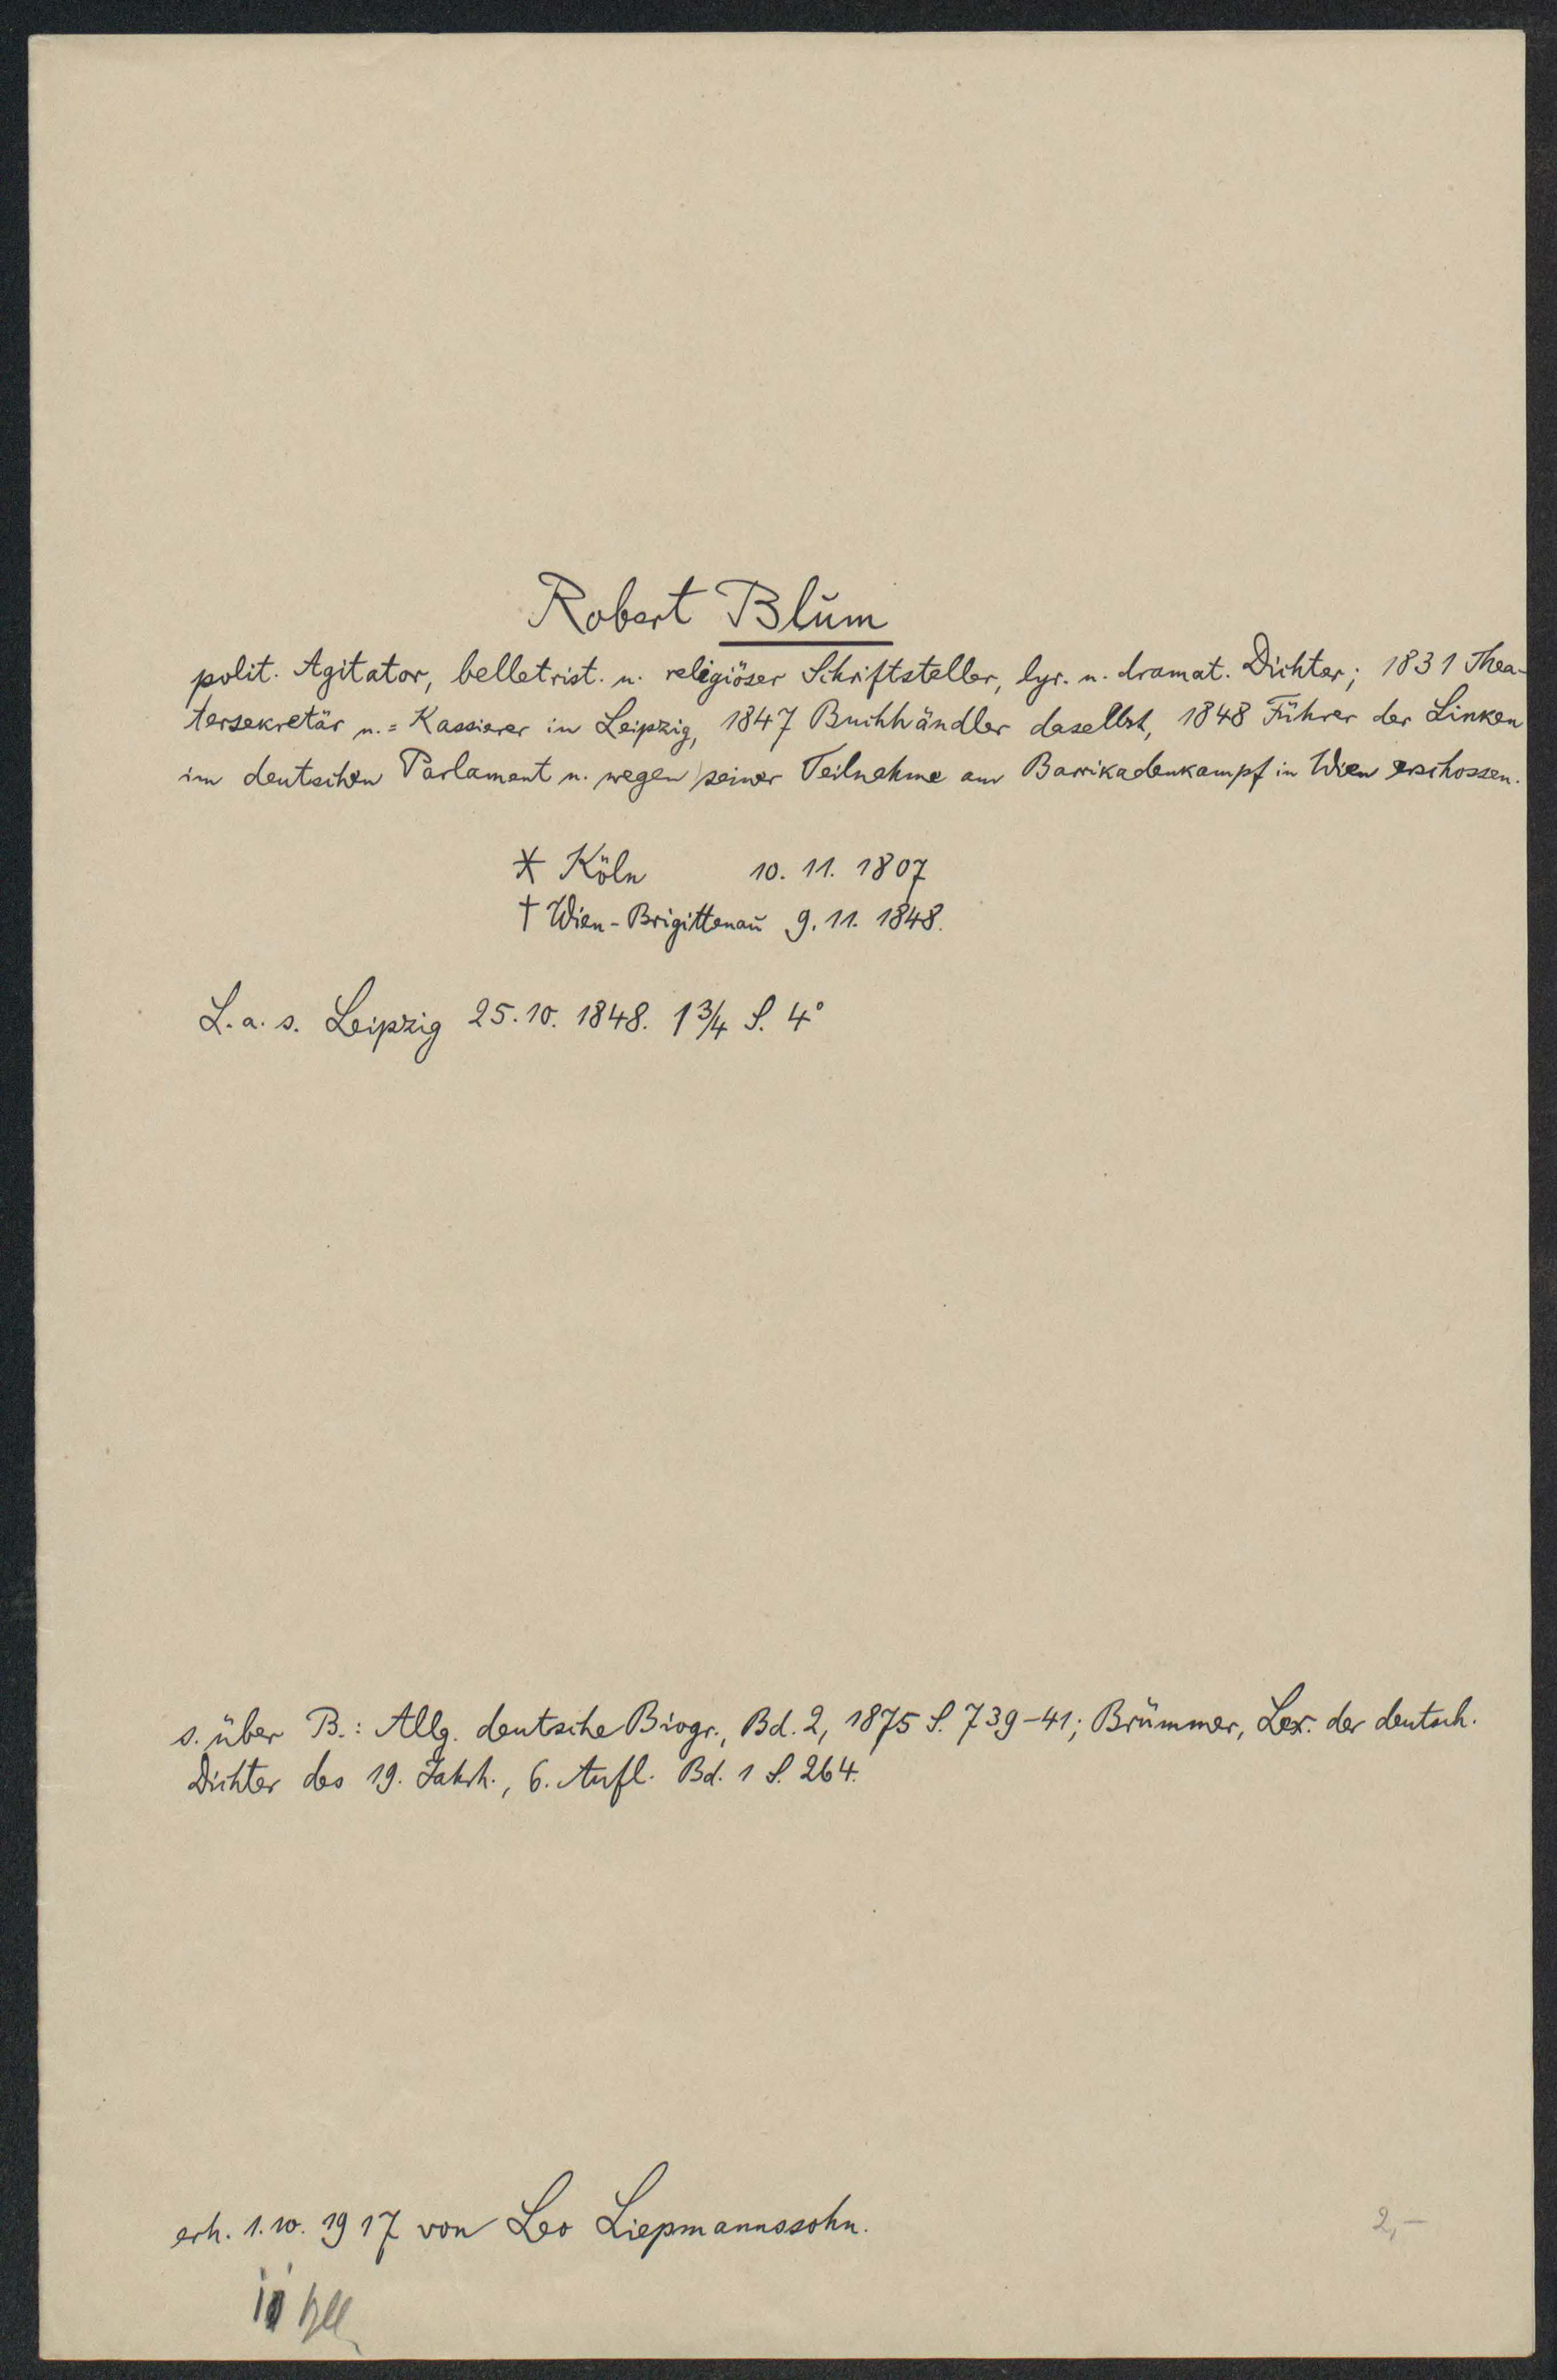 Robert Blŭm
polit. Agitator, belletrist. u. religiöser Schriftsteller, lyr. u. dramat. Dichter; 1831 Thea-
tersekretär u.=Kassierer in Leipzig, 1847 Buchhändler daselbst, 1848 Führer der Linken
im deutschen Parlament u. wegen seiner Teilnahme am Barrikadenkampf in Wien erschossen.
* Köln 10. 11. 1807
† Wien-Brigittenaŭ 9. 11. 1848.
L. a. s. Leipzig 25. 10. 1848. 1 3/4 S. 4°
s. über B.: Allg. deutsche Biogr., Bd. 2, 1875 S. 739-41; Brümmer, Lex. der deutsch.
Dichter des 19. Jahrh., 6. Aufl. Bd. 1 S. 264.
erh. 1. 10. 1917 von Leo Liepmannssohn.
2,-